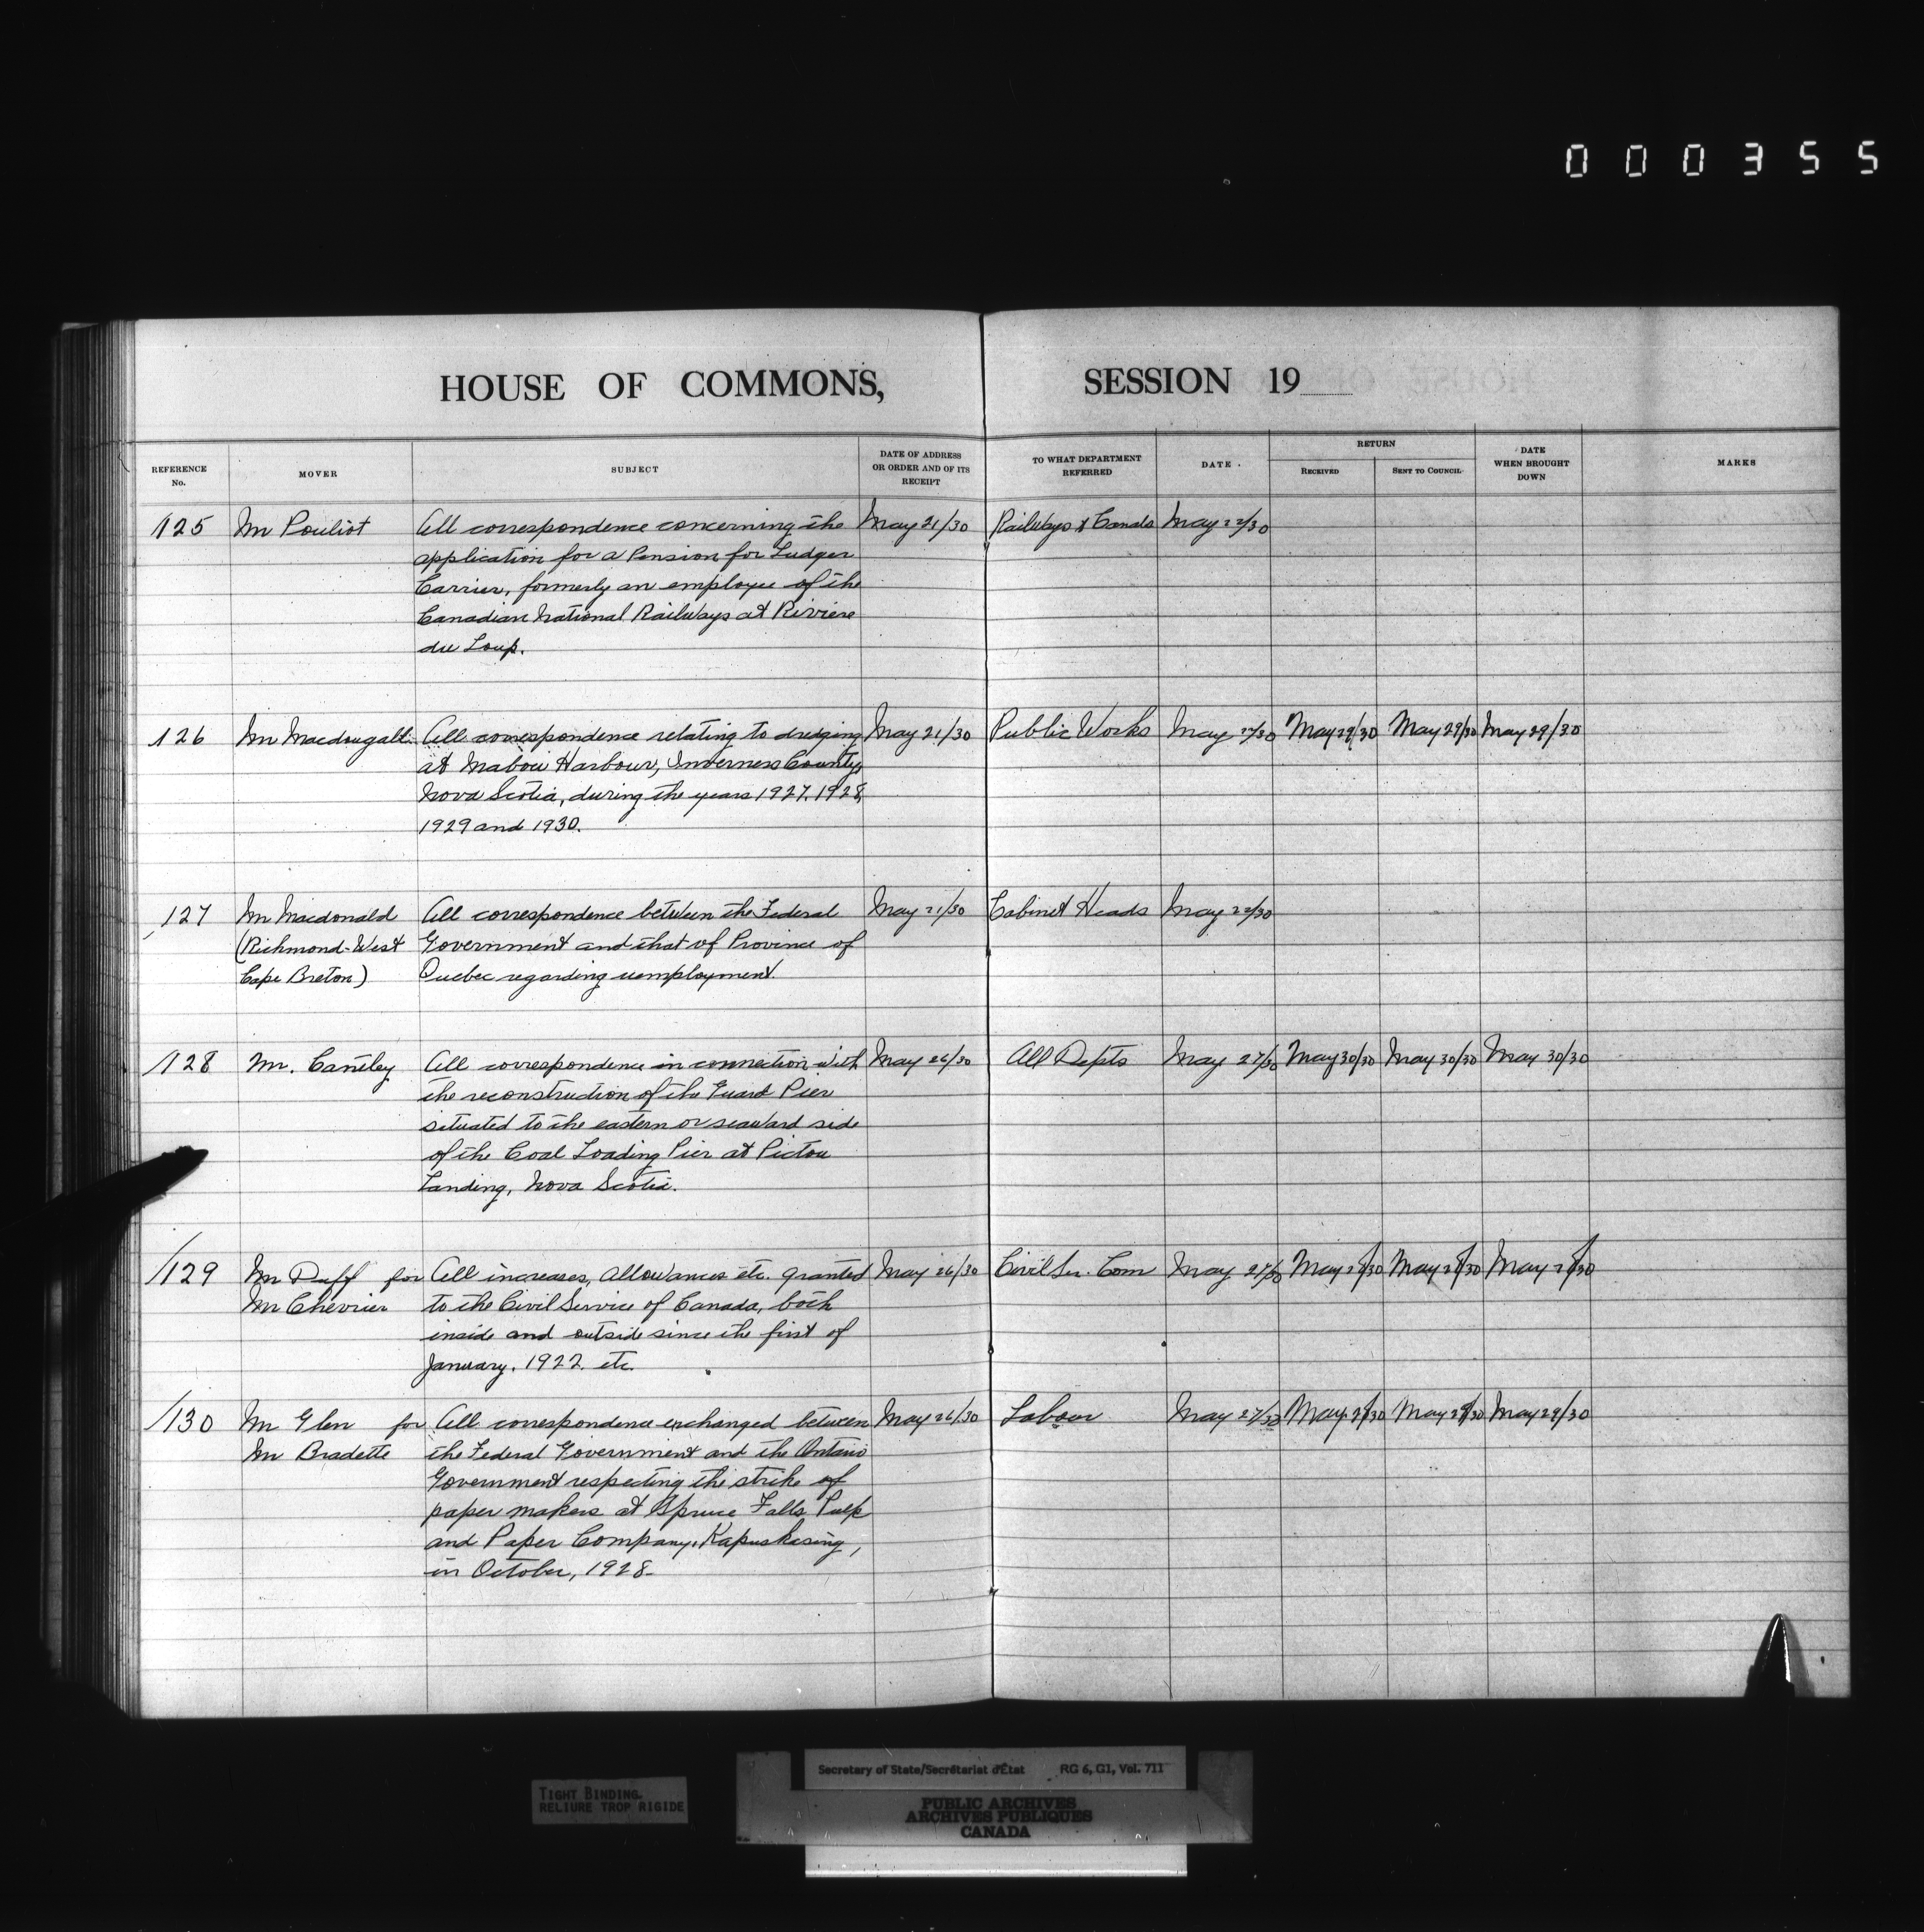 000355
HOUSE OF COMMONS, SESSION 19
REFERENCE No. MOVER SUBJECT DATE OF ADDRESS OR ORDER AND OF ITS RECEIPT TO WHAT DEPARTMENT REFERRED DATE RETURN RECEIVED SENT TO COUNCIL DATE WHEN BROUGHT DOWN MARKS
125 Mr Pouliot All correspondence concerning the May 21/30 Railways & Canals May 22/30
application for a Pension for Ludger
Carrier, formerly an employee of the
Canadian National Railways at Riviere
du Loup.
126 Mr Macdougall All correspondence relating to dredging May 21/30 Public Works May 22/30 May 29/30 May 29/30 May 29/30
at Mabou Harbour, Inverness County,
Nova Scotia, during the years 1927, 1928,
1929 and 1930.
127 Mr Macdonald All correspondence between the Federal May 21/30 Cabinet Heads May 22/30
(Richmond-West Government and that of Province of
Cape Breton) Quebec regarding uemployment.
128 Mr. Cantley All correspondence in connection with May 26/30 All Depts May 27/30 May 30/30 May 30/30 May 30/30
the reconstruction of the Guard Pier
situated to the eastern or seaward side
of the Coal Loading Pier at Pictou
Landing, Nova Scotia.
129 Mr Duff for All increases, allowances etc. granted May 26/30 Civil Sr. Com May 27/30 May /30 May /30 May /30
Mr Chevrier to the Civil Service of Canada, both
inside and outside since the first of
January, 1922. etc.
130 Mr Glen for All correspondence exchanged between May 26/30 Labour May 27/30 May 29/30 May 29/30 May 29/30
Mr Bradette the Federal Government and the Ontario
Government respecting the strike of
paper makers at Spruce Falls Pulp
and Paper Company, Kapuskasing,
in October, 1928.
Secretary of State/Secrétariat d'État RG 6, G1, Vol. 711
TIGHT BINDING
RELIURE TROP RIGIDE
PUBLIC ARCHIVES
ARCHIVES PUBLIQUES
CANADA